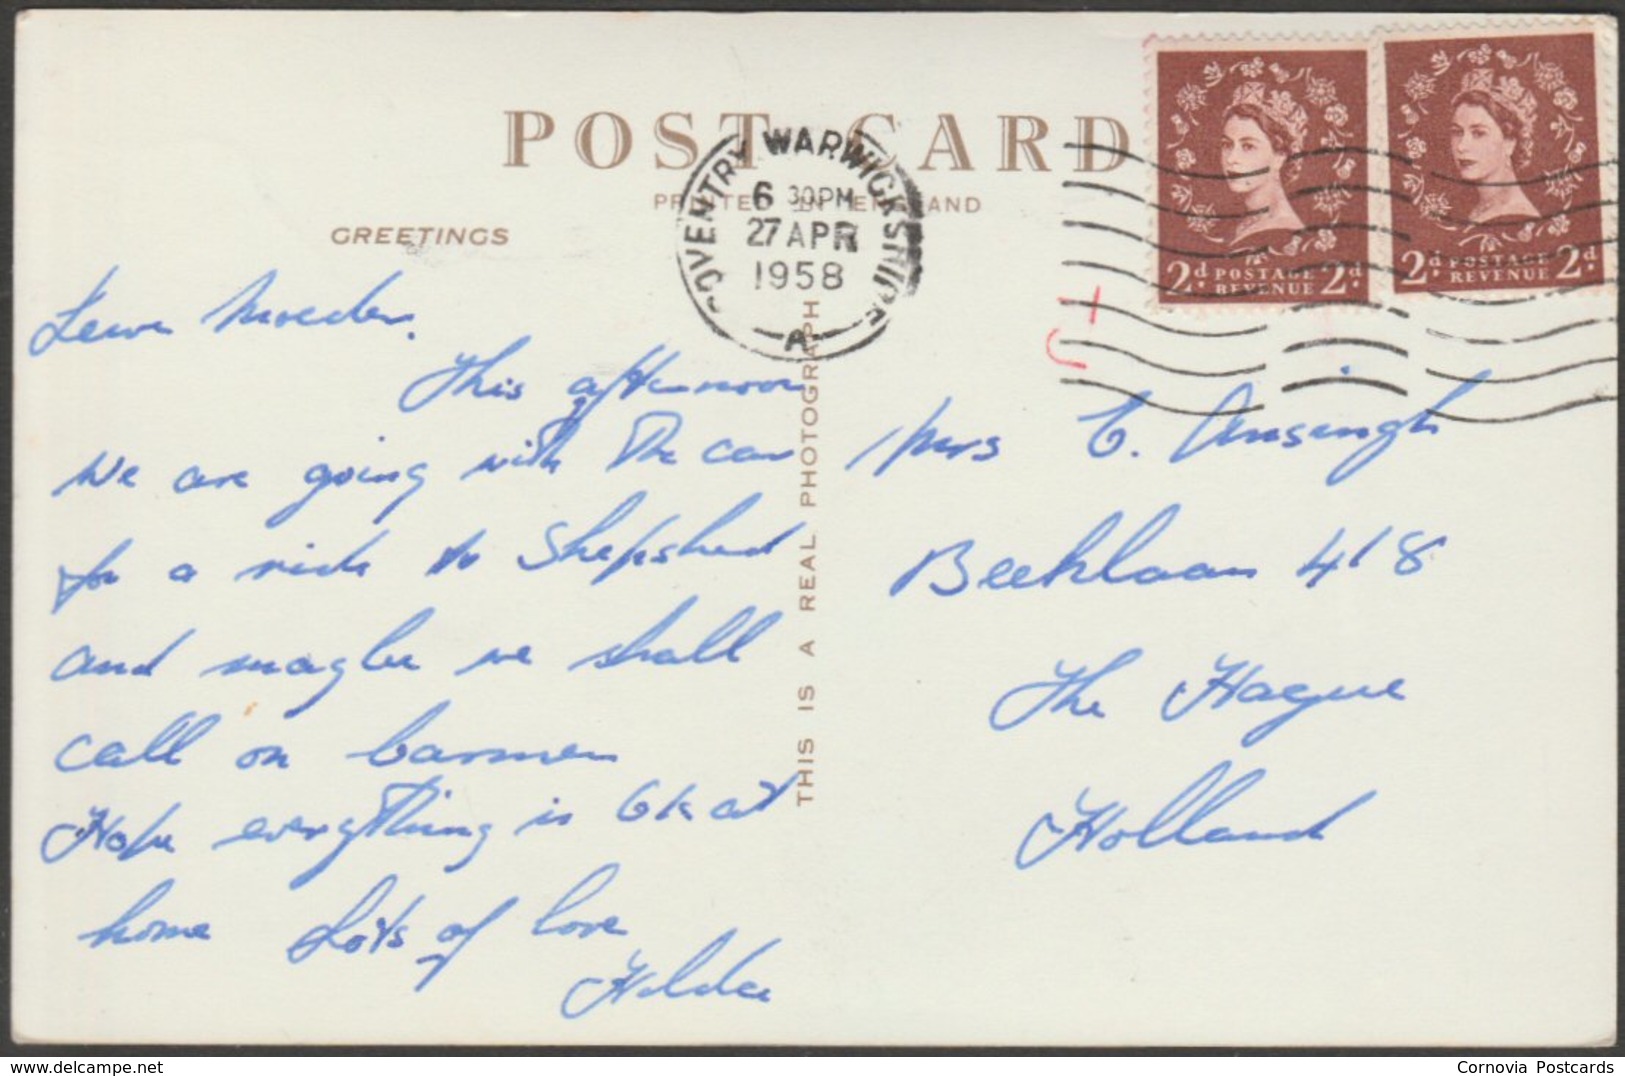 POST CARD
PRINTED IN ENGLAND
GREETINGS
COVENTRY WARWICKSHIRE
6 30PM
27 APR
1958
A
2d POSTAGE REVENUE 2d
2d POSTAGE REVENUE 2d
THIS IS A REAL PHOTOGRAPH
Moeder.
This afternoon
we are going with the car
for a ride to Shepshed
and maybe we shall
call on
Hope everything is Ok at
home Lots of love
Hilda
Mrs E. Ansingh
Beeklaan 418
The Hague
Holland
delcampe.net
Cornovia Postcards